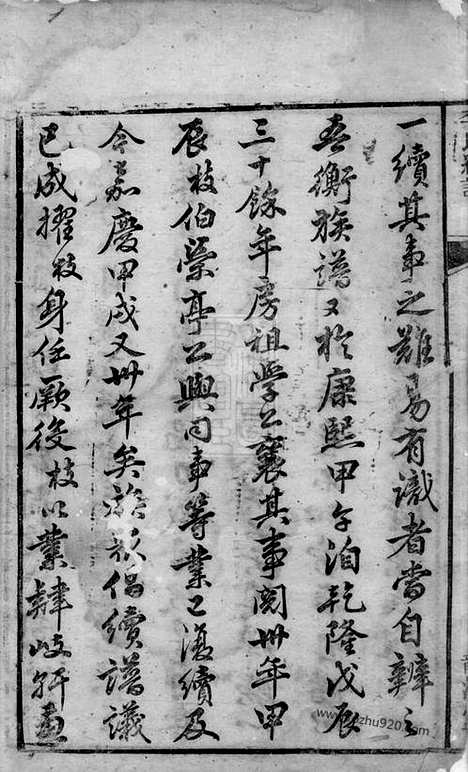 一續其事之難易有識者當自辨之
吾衡族譜又於康熙甲午洎乾隆戊辰
三十餘年房祖學公襄其事閱卅年甲
辰枝伯榮亭公與同事等業已復續及
今嘉慶甲戌又卅年矣族叔倡續譜議
已成擢枝身任厥後枝以業肄岐軒
zhu920.com